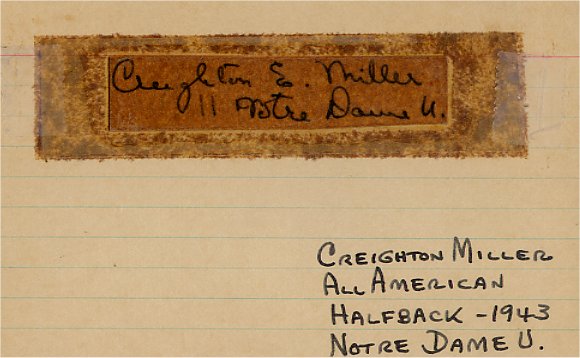 Creighton E. Miller
11 Notre Dame U.
CREIGHTON MILLER
ALL AMERICAN
HALFBACK - 1943
NOTRE DAME U.